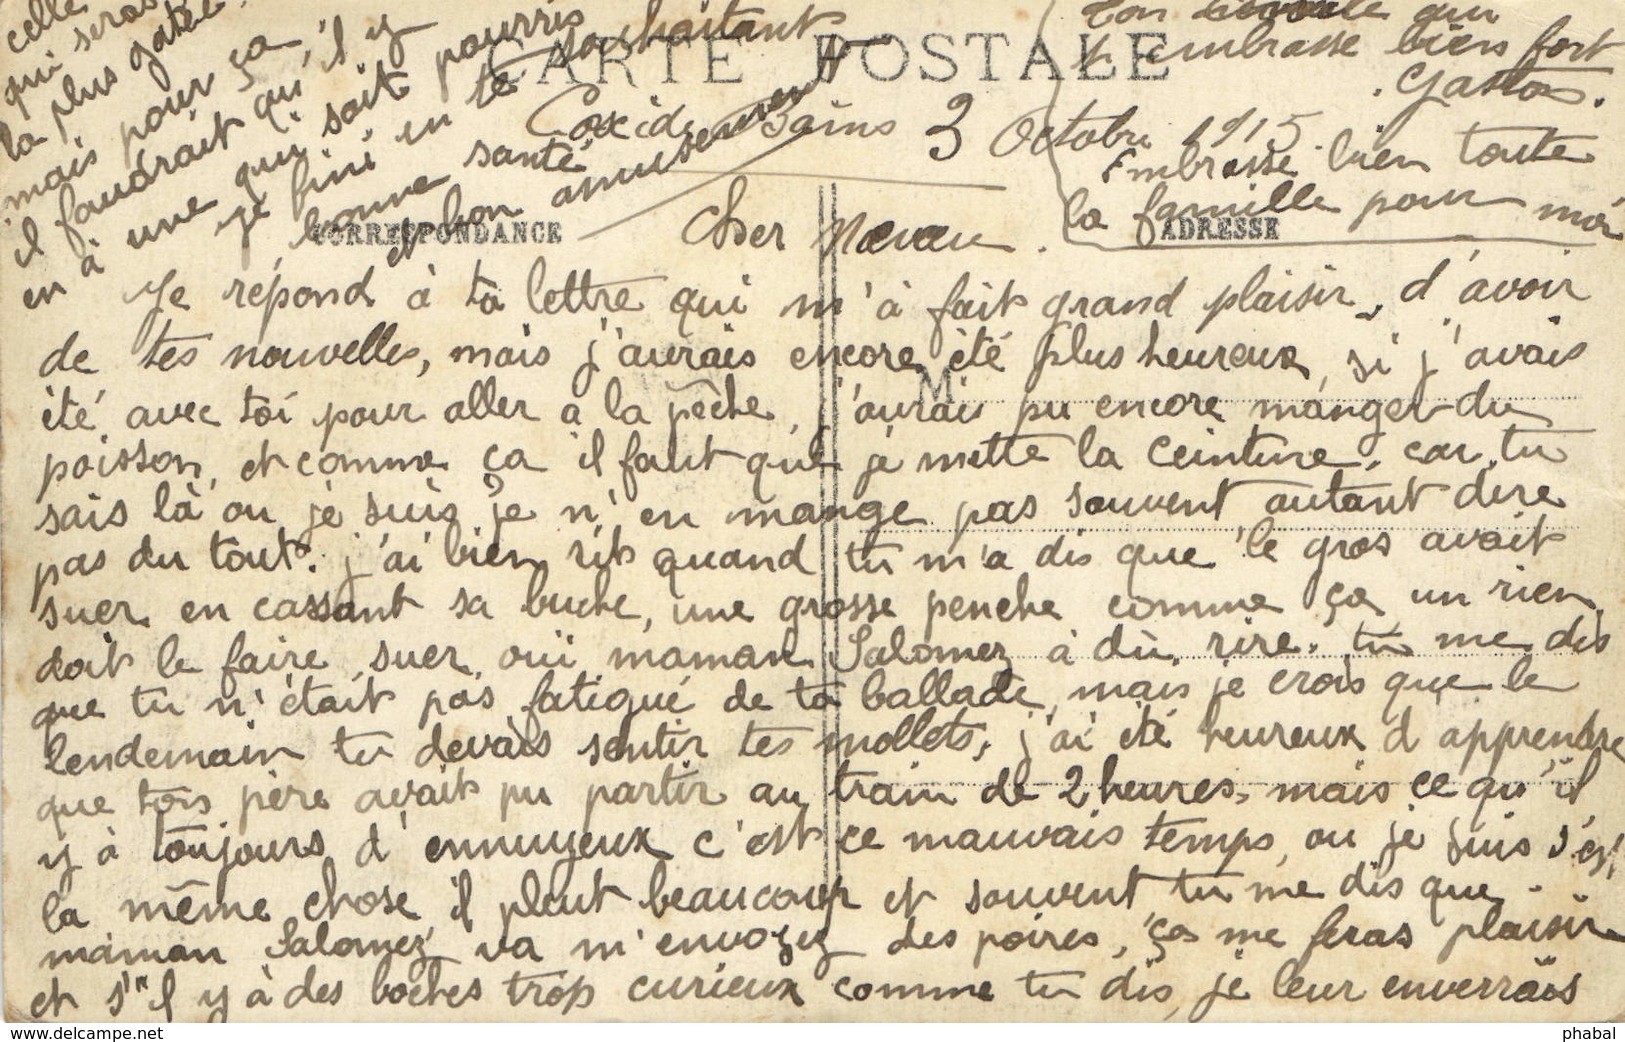 CARTE POSTALE
Coxide Bains 3 Octobre 1915.
CORRESPONDANCE
ADRESSE
M
Cher Neveu.
Je répond à ta lettre qui m'à fait grand plaisir, d'avoir
de tes nouvelles, mais j'aurais encore été plus heureux, si j'avais
été avec toi pour aller a la pêche, j'aurais pu encore manger du
poisson, et comme ça il faut que je mette la ceinture, car tu
sais là ou je suis je n'en mange pas souvent autant dire
pas du tout. j'ai bien rit quand tu m'a dis que le gros avait
suer en cassant sa buche, une grosse penche comme ça un rien
doit le faire suer, oui maman Salomez à dû rire. tu me dis
que tu n'était pas fatigué de ta ballade, mais je crois que le
lendemain tu devais sentir tes mollets, j'ai été heureux d'apprendre
que tois père avait pu partir au train de 2 heures, mais ce qu'il
y à toujours d'ennuyeux c'est ce mauvais temps, ou je suis s'est
la même chose il pleut beaucoup et souvent tu me dis que
maman Salomez va m'envoyez des poires, ça me feras plaisir
et s'il y à des boches trop curieux comme tu dis, je leur enverrais
celle
qui seras
la plus gatée
mais pour ça,
il faudrait qu'il y
en à une qui soit pourris
je fini en te souhaitant
bonne santé
et bon amusement
Ton qui
t'embrasse bien fort
Gaston.
Embrasse bien toute
la famille pour moi
delcampe.net
phabal